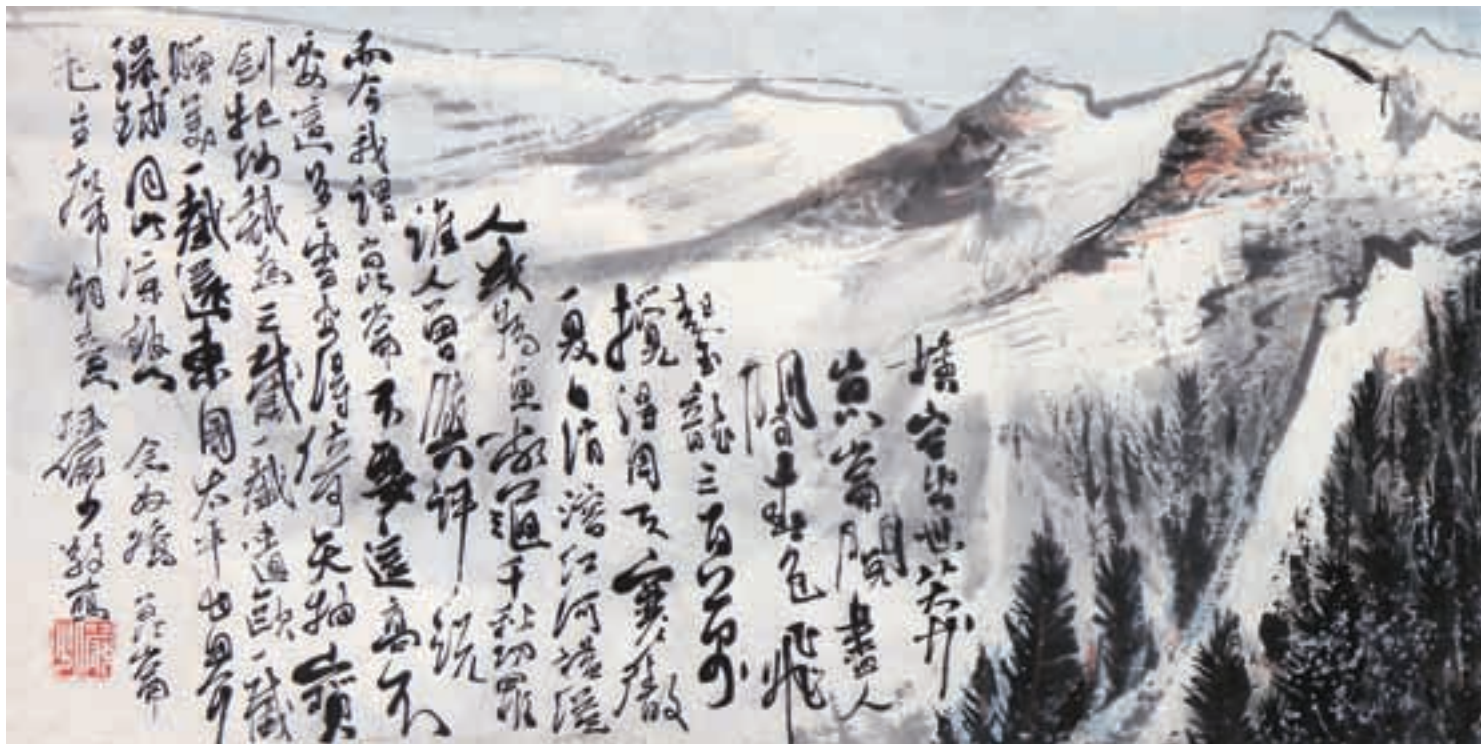 橫空出世莽
崑崙閱盡人
間春色飛
起玉龍三百萬
攪得周天寒徹
夏日消溶江河橫溢
人或為魚鱉千秋功罪
誰人曾與評說
而今我謂崑崙不要這高不
要這多雪安得倚天抽寶
劍把汝裁為三截一截遺歐一截
贈美一截還東國太平世界
環球同此涼熱 念奴嬌 崑崙
毛主席詞意